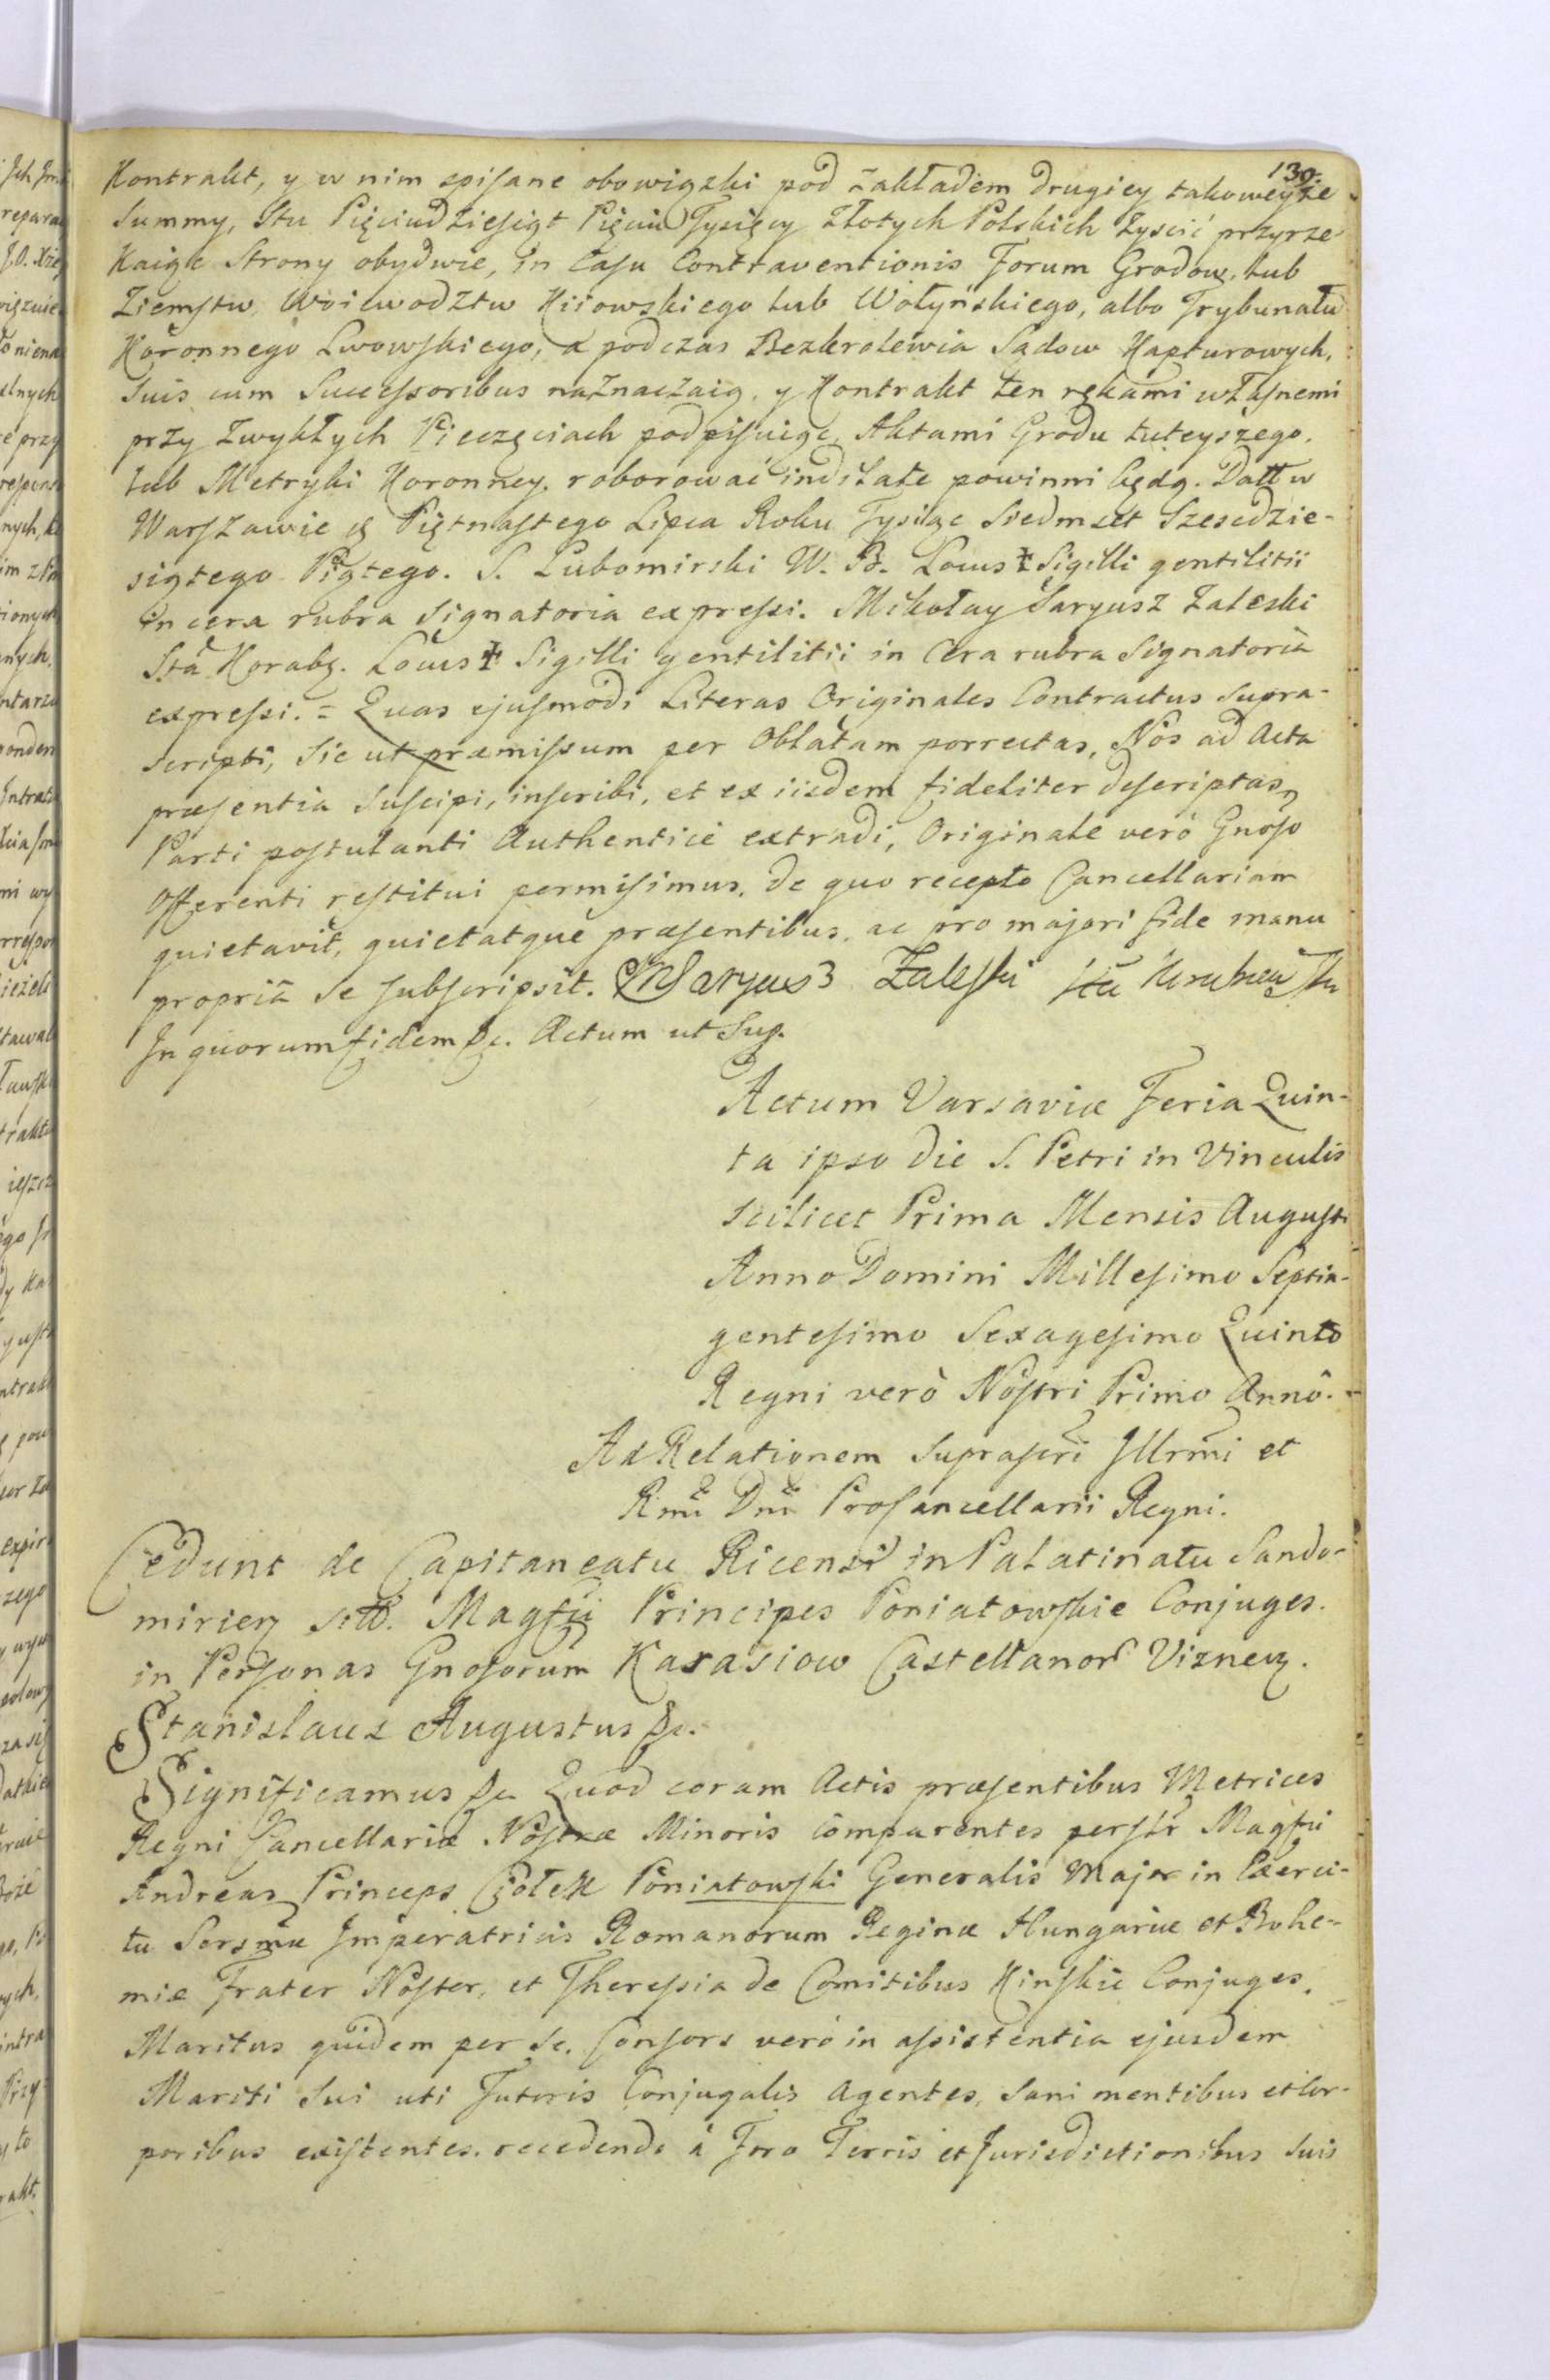 130.
Kontrakt, y w nim spisane obowiązki pod zakładem drugiey takoweyże
Summy, Stu Pięciudziesiąt Pięciu Tysięcy Złotych Polskich zyscić przyrze
Kaiąc Strony obydwie, in Casu Contraventionis Forum Grodow, lub
Ziemstw, Woiewodztw Kiiowskiego lub Wołyńskiego, albo Trybunału
Koronnego Lwowskiego, a podczas Bezkrolewia Sądow Kapturowych,
Suis cum Successoribus naznaczaią, y Kontrakt ten rękami własnemi
przy zwykłych Pieczęciach podpisuiąc, Aktami Grodu tuteyszego,
lub Metryki Koronney, roborować indilate powinni będą. Datt w
Warszawie d. Piętnastego Lipca Roku Tysiąc Siedmset Szescdzie-
siątego Piątego. S. Lubomirski W. B. Locus ‡ Sigilli gentilitii
in cera rubra signatoria expressi. Mikołay Saryusz Zaleski
Stã Horabg. Locus ‡ Sigilli gentilitii in Cera rubra Signatoria
expressi. = Quas ejusmodi Literas Originales Contractus supra-
scripti, sic ut præmissum per Oblatam porrectas, Nos ad Acta
præsentia suscipi, inscribi, et ex iisdem fideliter descriptas,
Parti postulanti Authenticè extradi, Originale verò Gnoso
Offerenti restitui permisimus, de quo recepto Cancellariam
quietavit, quietatque præsentibus, ac pro majori fide manu
propriâ se subscripsit. M Saryusz Zaleski Stã
In quorum fidem &c. Actum ut Sup.
Actum Varsaviæ Feria Quin-
ta ipso die S. Petri in Vinculis
scilicet Prima Mensis Augusti
Anno Domini Millesimo Septin-
gentesimo Sexagesimo Quinto
Regni verò Nostri Primo Annô.
Ad Relationem suprascri Illrmi et
Rmi Dni ProCancellarii Regni.
Cedunt de Capitaneatu Ricensi in Palatinatu Sando-
mirien sitô. Magfii Principes Poniatowskie Conjuges.
in Personas Gnosorum Karasiow Castellanor Viznen.
Stanislaus Augustus &c.
Significamus &c. Quod coram Actis præsentibus Metrices
Regni Cancellariæ Nostræ Minoris comparentes perslr Magfii
Andreas Princeps Ciołek Poniatowski Generalis Major in Exerci-
tu Sersmæ Imperatricis Romanorum Reginæ Hungariæ et Bohe-
miæ Frater Noster, et Theressia de Comitibus Kinskie Conjuges,
Maritus quidem per se, Consors verò in assistentia ejusdem
Mariti sui uti Tutoris Conjugalis Agentes, sani mentibus et Cor-
poribus existentes, recedendo à Foro Terris et Jurisdictionibus suis